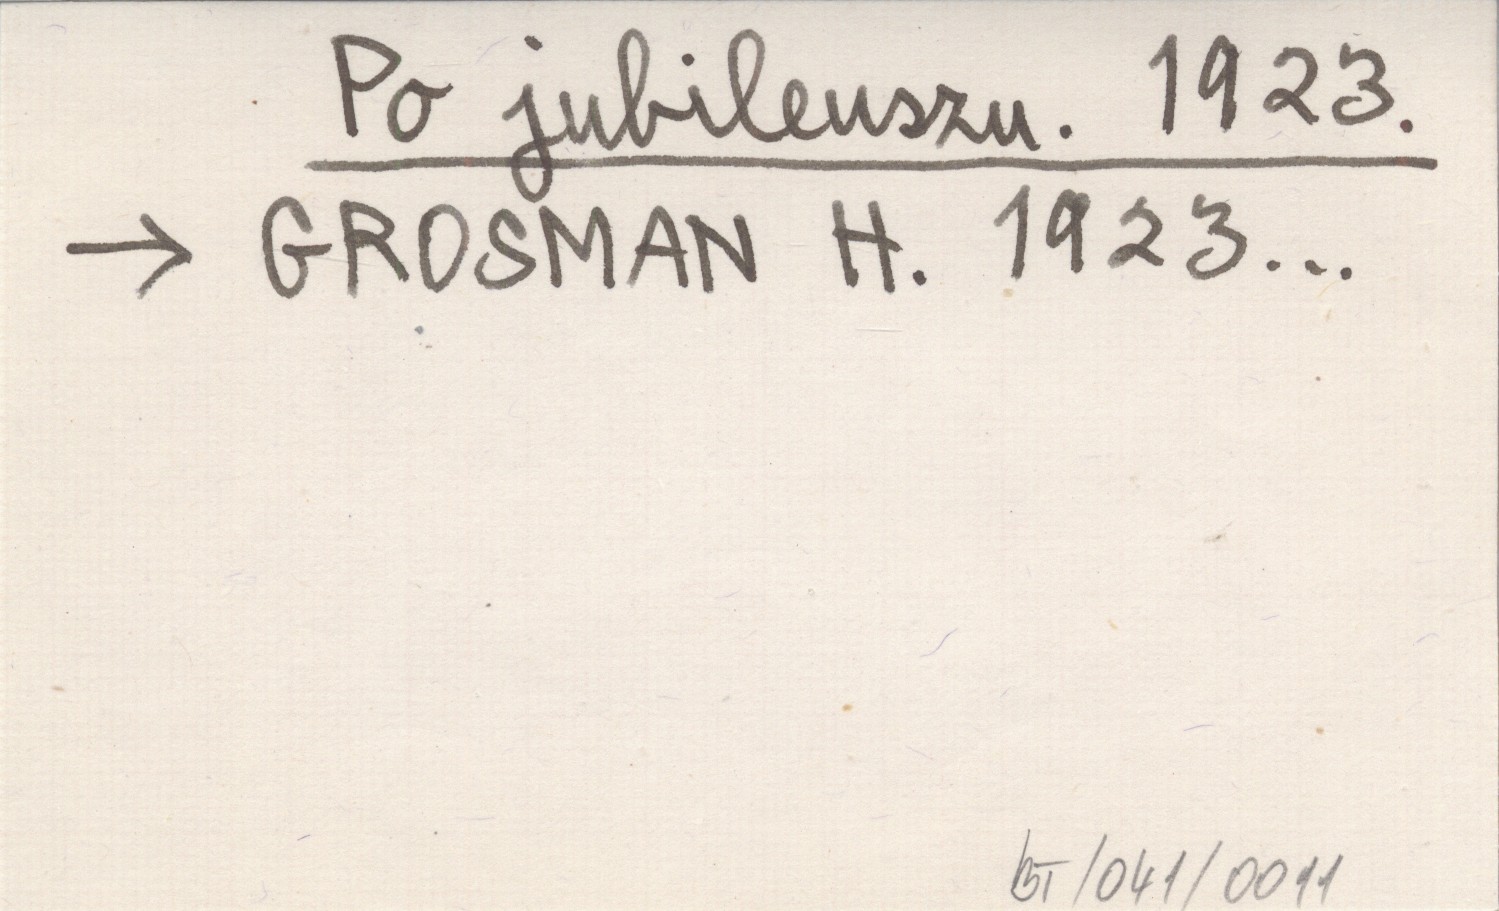 Po jubileuszu. 1923.
→ GROSMAN H. 1923...
BT/041/0011